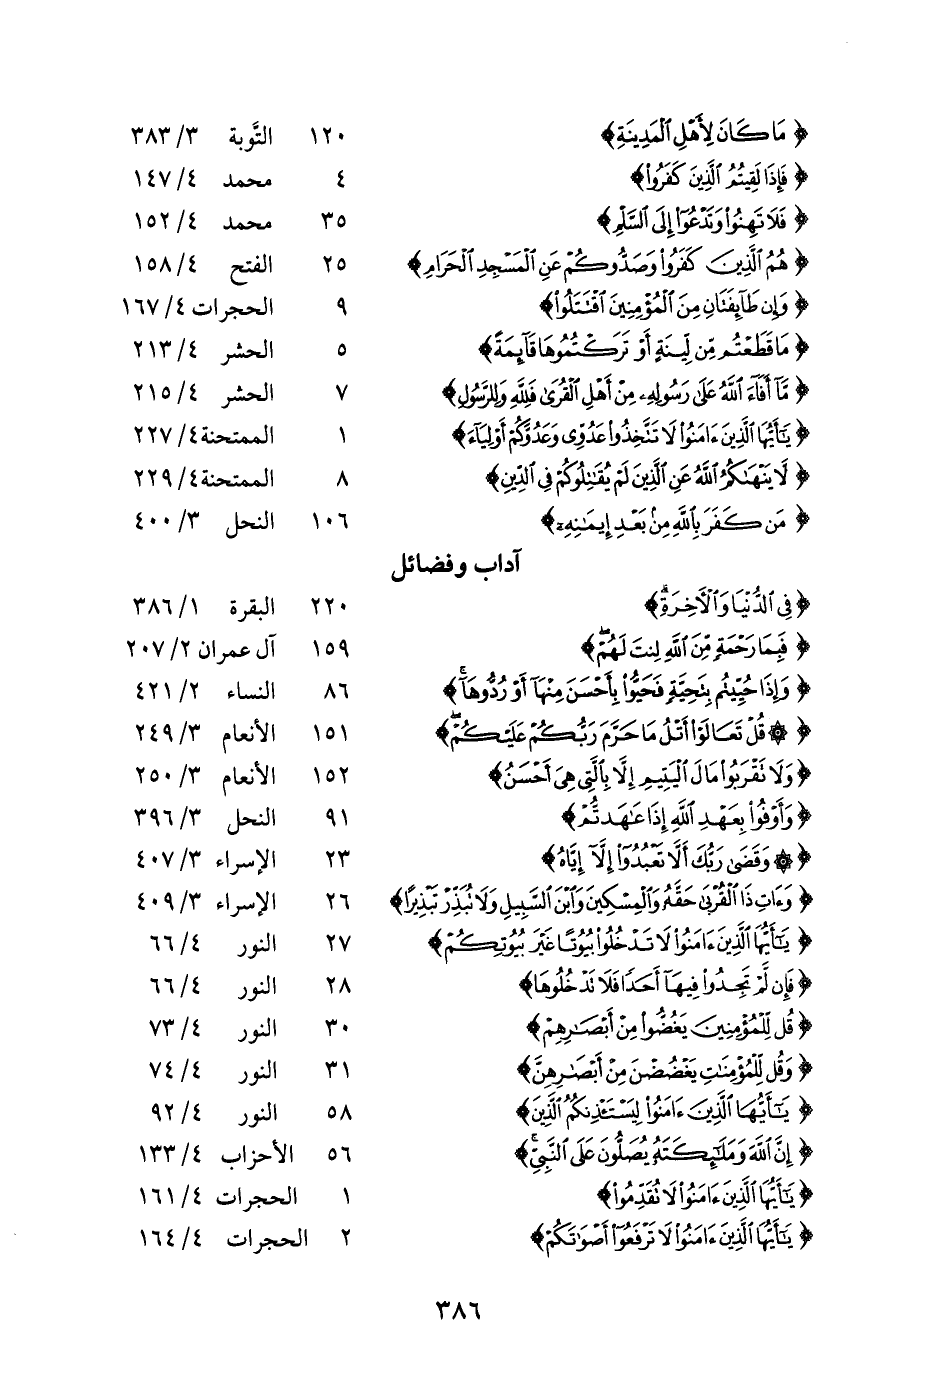 ﴿ مَا كَانَ لِأَهْلِ ٱلْمَدِينَةِ ﴾ ١٢٠ التَّوبة ٣/ ٣٨٣
﴿ فَإِذَا لَقِيتُمُ ٱلَّذِينَ كَفَرُوا۟ ﴾ ٤ محمد ٤/ ١٤٧
﴿ فَلَا تَهِنُوا۟ وَتَدْعُوٓا۟ إِلَى ٱلسَّلْمِ ﴾ ٣٥ محمد ٤/ ١٥٢
﴿ هُمُ ٱلَّذِينَ كَفَرُوا۟ وَصَدُّوكُمْ عَنِ ٱلْمَسْجِدِ ٱلْحَرَامِ ﴾ ٢٥ الفتح ٤/ ١٥٨
﴿ وَإِن طَآئِفَتَانِ مِنَ ٱلْمُؤْمِنِينَ ٱقْتَتَلُوا۟ ﴾ ٩ الحجرات ٤/ ١٦٧
﴿ مَا قَطَعْتُم مِّن لِّينَةٍ أَوْ تَرَكْتُمُوهَا قَآئِمَةً ﴾ ٥ الحشر ٤/ ٢١٣
﴿ مَّآ أَفَآءَ ٱللَّهُ عَلَىٰ رَسُولِهِۦ مِنْ أَهْلِ ٱلْقُرَىٰ فَلِلَّهِ وَلِلرَّسُولِ ﴾ ٧ الحشر ٤/ ٢١٥
﴿ يَـٰٓأَيُّهَا ٱلَّذِينَ ءَامَنُوا۟ لَا تَتَّخِذُوا۟ عَدُوِّى وَعَدُوَّكُمْ أَوْلِيَآءَ ﴾ ١ الممتحنة ٤/ ٢٢٧
﴿ لَّا يَنْهَىٰكُمُ ٱللَّهُ عَنِ ٱلَّذِينَ لَمْ يُقَـٰتِلُوكُمْ فِى ٱلدِّينِ ﴾ ٨ الممتحنة ٤/ ٢٢٩
﴿ مَن كَفَرَ بِٱللَّهِ مِنۢ بَعْدِ إِيمَـٰنِهِۦٓ ﴾ ١٠٦ النحل ٣/ ٤٠٠
آداب وفضائل
﴿ فِى ٱلدُّنْيَا وَٱلْـَٔاخِرَةِ ۗ ﴾ ٢٢٠ البقرة ١/ ٣٨٦
﴿ فَبِمَا رَحْمَةٍ مِّنَ ٱللَّهِ لِنتَ لَهُمْ ۖ ﴾ ١٥٩ آل عمران ٢/ ٢٠٧
﴿ وَإِذَا حُيِّيتُم بِتَحِيَّةٍ فَحَيُّوا۟ بِأَحْسَنَ مِنْهَآ أَوْ رُدُّوهَآ ۗ ﴾ ٨٦ النساء ٢/ ٤٢١
﴿ ۞ قُلْ تَعَالَوْا۟ أَتْلُ مَا حَرَّمَ رَبُّكُمْ عَلَيْكُمْ ۖ ﴾ ١٥١ الأنعام ٣/ ٢٤٩
﴿ وَلَا تَقْرَبُوا۟ مَالَ ٱلْيَتِيمِ إِلَّا بِٱلَّتِى هِىَ أَحْسَنُ ﴾ ١٥٢ الأنعام ٣/ ٢٥٠
﴿ وَأَوْفُوا۟ بِعَهْدِ ٱللَّهِ إِذَا عَـٰهَدتُّمْ ﴾ ٩١ النحل ٣/ ٣٩٦
﴿ ۞ وَقَضَىٰ رَبُّكَ أَلَّا تَعْبُدُوٓا۟ إِلَّآ إِيَّاهُ ﴾ ٢٣ الإسراء ٣/ ٤٠٧
﴿ وَءَاتِ ذَا ٱلْقُرْبَىٰ حَقَّهُۥ وَٱلْمِسْكِينَ وَٱبْنَ ٱلسَّبِيلِ وَلَا تُبَذِّرْ تَبْذِيرًا ﴾ ٢٦ الإسراء ٣/ ٤٠٩
﴿ يَـٰٓأَيُّهَا ٱلَّذِينَ ءَامَنُوا۟ لَا تَدْخُلُوا۟ بُيُوتًا غَيْرَ بُيُوتِكُمْ ﴾ ٢٧ النور ٤/ ٦٦
﴿ فَإِن لَّمْ تَجِدُوا۟ فِيهَآ أَحَدًا فَلَا تَدْخُلُوهَا ﴾ ٢٨ النور ٤/ ٦٦
﴿ قُل لِّلْمُؤْمِنِينَ يَغُضُّوا۟ مِنْ أَبْصَـٰرِهِمْ ﴾ ٣٠ النور ٤/ ٧٣
﴿ وَقُل لِّلْمُؤْمِنَـٰتِ يَغْضُضْنَ مِنْ أَبْصَـٰرِهِنَّ ﴾ ٣١ النور ٤/ ٧٤
﴿ يَـٰٓأَيُّهَا ٱلَّذِينَ ءَامَنُوا۟ لِيَسْتَـْٔذِنكُمُ ٱلَّذِينَ ﴾ ٥٨ النور ٤/ ٩٢
﴿ إِنَّ ٱللَّهَ وَمَلَـٰٓئِكَتَهُۥ يُصَلُّونَ عَلَى ٱلنَّبِىِّ ۚ ﴾ ٥٦ الأحزاب ٤/ ١٣٣
﴿ يَـٰٓأَيُّهَا ٱلَّذِينَ ءَامَنُوا۟ لَا تُقَدِّمُوا۟ ﴾ ١ الحجرات ٤/ ١٦١
﴿ يَـٰٓأَيُّهَا ٱلَّذِينَ ءَامَنُوا۟ لَا تَرْفَعُوٓا۟ أَصْوَٰتَكُمْ ﴾ ٢ الحجرات ٤/ ١٦٤
٣٨٦